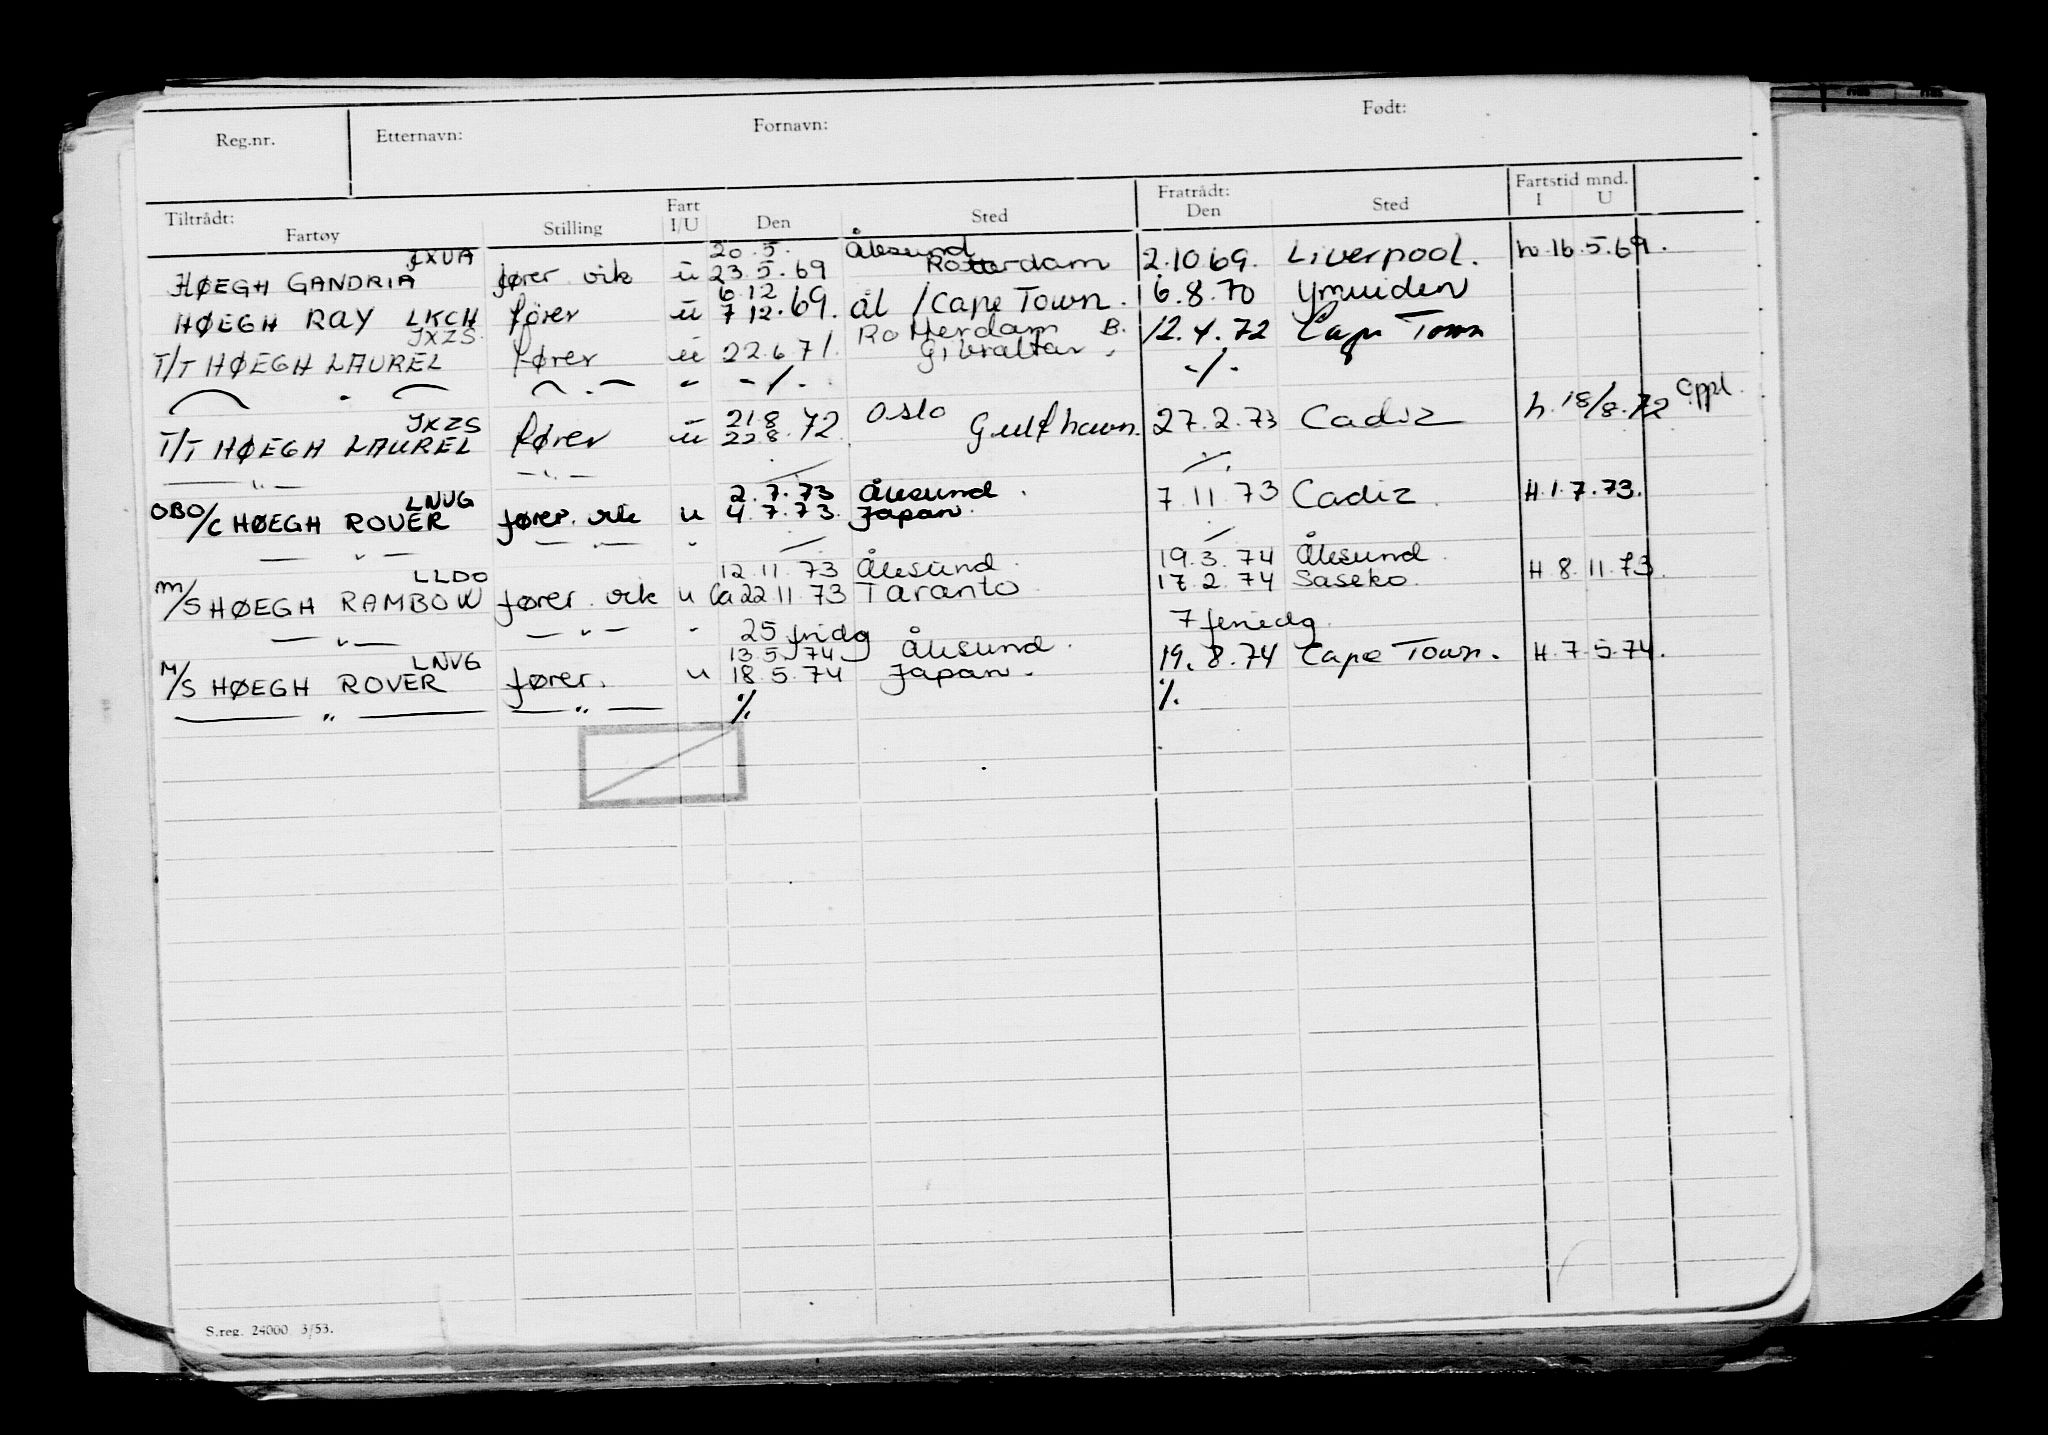 Reg.nr. Etternavn: Fornavn: Født:
Tiltrådt: Fartøy Stilling Fart I/U Den Sted Fratrådt: Den Sted Fartstid mnd. I U
JXUA 20.5. Ålesund
HØEGH GANDRIA fører vik u 23.5.69 Rotterdam 2.10.69. Liverpool. h. 16.5.69.
6.12
HØEGH RAY LKCH fører u 7.12.69. Ål / Cape Town. 6.8.70 Ymuiden
JXZS Rotterdam B. 12.4.72 Cape Town
T/T HØEGH LAUREL fører u 22.6.71. Gibraltar.
- " - - " - " -/. -/.
JXZS 21.8 Oslo
T/T HØEGH LAUREL fører u 22.8.72 Gulfhavn. 27.2.73 Cadiz h. 18/8.72 oppl.
- " - - " -
LNVG 2.7.73 Ålesund.
OBO/C HØEGH ROVER fører vik u 4.7.73. Japan. 7.11.73 Cadiz. H.1.7.73.
- " - - " - "
LLDO 12.11.73 Ålesund. 19.3.74 Ålesund.
M/S HØEGH RAMBOW fører vik u Ca 22.11.73 Taranto 17.2.74 Saseko. H.8.11.73.
- " - - " - " 25 fridg 7 feriedg.
LNVG 13.5.74 Ålesund.
M/S HØEGH ROVER fører. u 18.5.74 Japan. 19.8.74 Cape Town. H.7.5.74.
- " - - " - ./. ./.
S.reg. 24000 3/53.